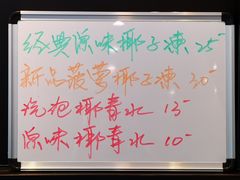 经典原味椰子冻 25-
新品菠萝椰子冻 30-
汽泡椰青水 15-
原味椰青水 10-